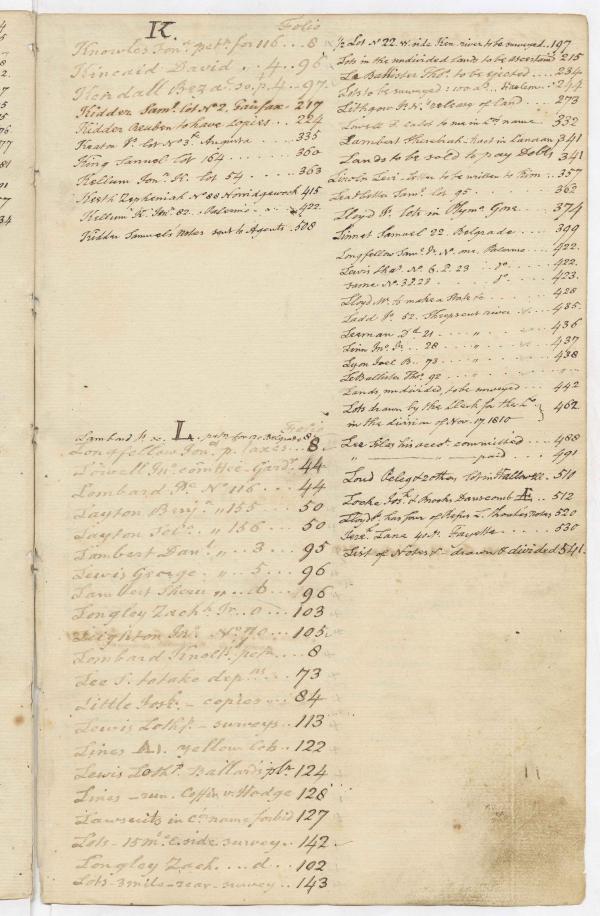 K. Folio
Knowles Jonn. petn. for 116 .. 8
Kincaid David .. 4 .. 96
Kendall Beza do. so. p. 4 .. 97
Kidder Saml. Lot No 2. Fairfax .. 217
Kidder Reuben to have copies .. 224
Keaton Lot No 3. Augusta .. 335
King Samuel Lot 164 .. 360
Kellum Jonn. K. Lot 54 .. 363
Keith Zepheniah No 88 Norridgewock 415
Kellum K. Jno. 82. Palermo .. 422
Kidder Samuel's Notes sent to Agents. 508
L. Folio
Lombard petn. for 8
Longfellow Jona. p. taxes .. 8
Lowell Jno. comttee - Gardr. 44
Lombard No 116 .. 44
Layton Benj. " 155 .. 50
Layton " 156 .. 50
Lambert Danl. " .. 3 .. 95
Lewis George .. " .. 5 .. 96
Lambert " .. 6 .. 96
Longley Zach. Jr. .. 103
Leighton Jno. No 70 .. 105
Lombard petn. .. 8
Lee S. to take depns. .. 73
Little Josh. - copies .. 84
Lewis Lothp. - surveys .. 113
Lines yellow lots .. 122
Lewis Lothp. Ballard's pln 124
Lines - run. Coffin v. Hodge 128
Lawsuits in Co. name forbid 127
Lots - 15 m. E. side survey .. 142
Longley Zach .. d .. 102
Lots - 3 mile - rear - survey .. 143
1/2 Lot No 22. W. side Ken. river to be surveyed .. 197
Lots in the undivided lands to be ascertaind 215
La Ballister Thos. to be ejected .. 234
Lots to be surveyed 100 as. Harlem .. 244
Lithgow release of land .. 273
Lowell calld to me in Co. name .. 332
Lambert Sherebiah - in Canaan 341
Lands to be sold to pay Debts 341
Lincoln Levi - Letter to be written to him .. 357
Leadbetter Saml. Lot 95 .. 363
Lloyd Js. lots in Plymo. Gore .. 374
Linnet Samuel 22. Belgrade .. 399
Longfellow Saml. Jr. No. one, Palermo .. 422.
Lewis No. 6. 2. 23 do. .. 422.
same No. 32.23 do. .. 423.
Lloyd to make a State to .. 428
Ladd 52. Sheepscut river .. 435.
Leeman 21 .. " .. 436
Linn Jno. Jr. .. 28 .. " .. 437
Lyon Joel B. 73 .. " .. 438
LeBallister Thos. 92 .. " ..
Lands, undivided, to be surveyed .. 442
Lots drawn by the Clerk for the Co. in the division of Nov. 17 1810 } 462
Lee Silas his acct. committed .. 488
" " paid .. 491
Loud Peleg & 2 others Lot in 510
Locke Jos. & Brooks Dawscomb .. 512
Lloyd Js. has four of Refus L. Thwoits notes 520
Lane 40. Fayette .. 530
List of Notes &c drawn & divided 541.